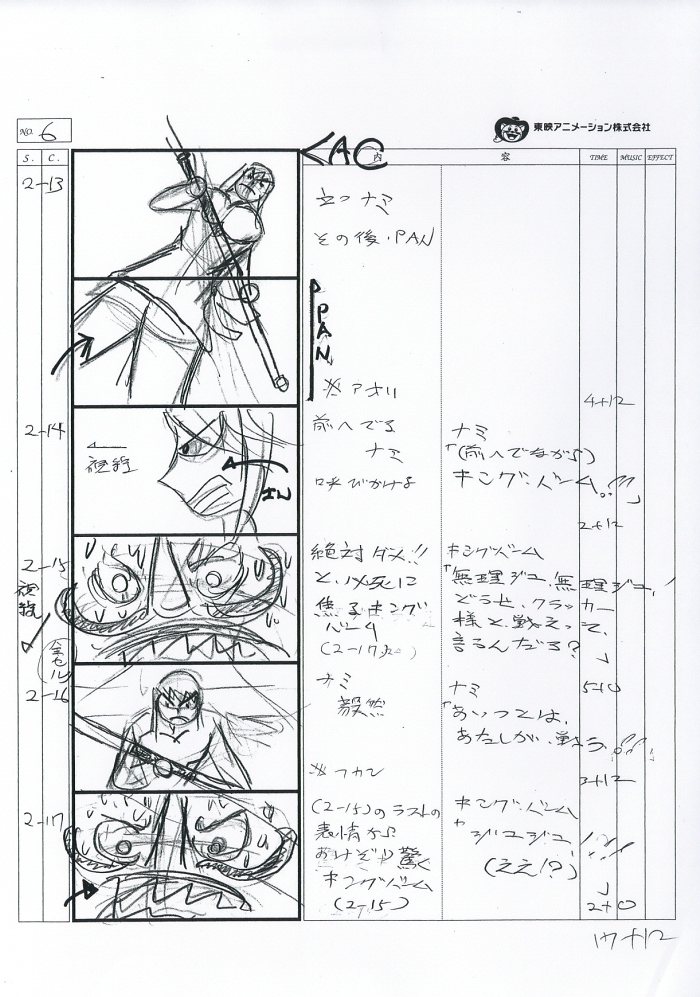 NO. 6
東映アニメーション株式会社
S. C. 内 容 TIME MUSIC EFFECT
<AC
2-13
立つナミ
その後・PAN
PAN
※アオリ
4+12
2-14
前へでる
ナミ
呼びかける
ナミ
「(前へでながら)
キングバーム。!!」
2+12
2-15
絶対ダメ!!
と、必死に
焦るキング
バーム
キングバーム
「無理ジュ、無理ジュ、!
どうせ、クラッカー
様と、戦えって、
言るんだろ?
」
全セル
5+0
2-16
ナミ
毅然
※フカン
ナミ
「あいつとは、
あたしが、戦う。!!
3+12
2-17
(2-15)のラストの
表情から
驚く
キングバーム
(2-15)
キングバーム
ジュジュ、!!
(ええ!?)
」
2+0
17+12